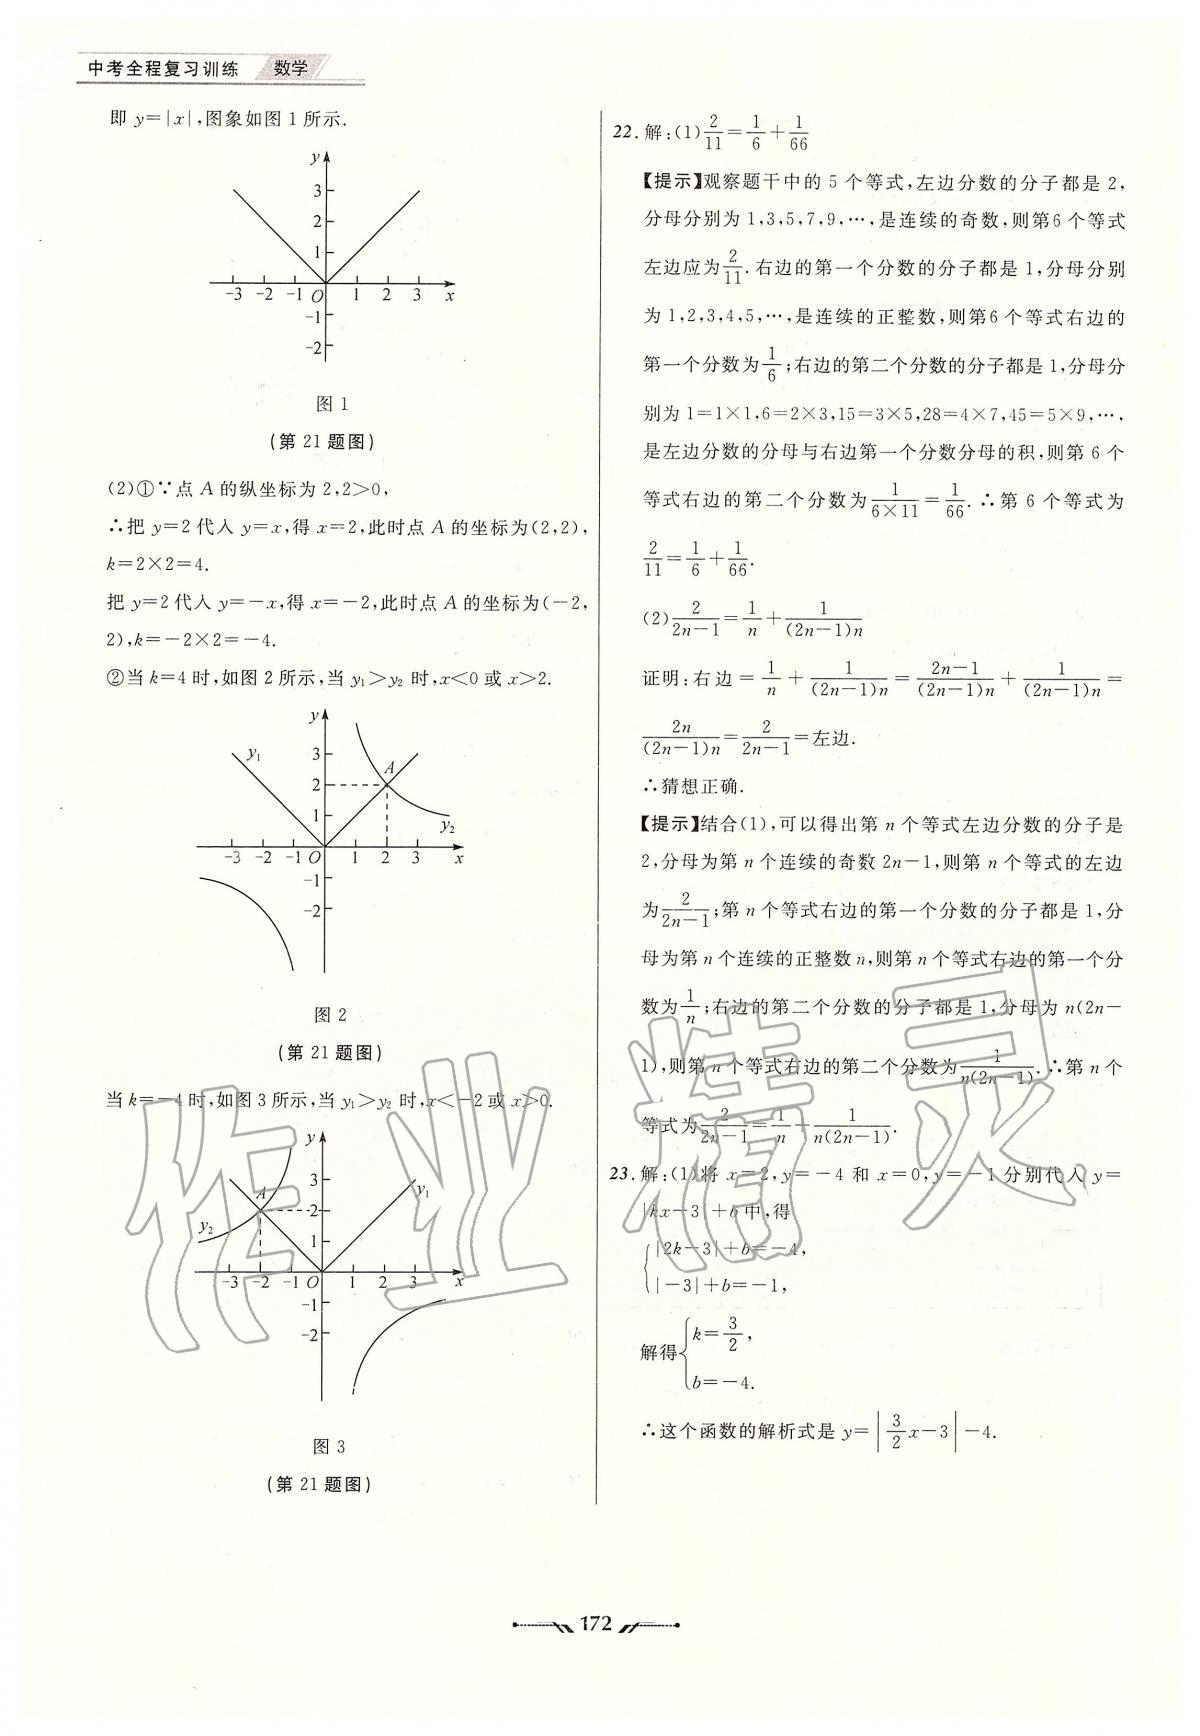 中考全程复习训练 数学
即 y=|x|,图象如图1所示.
y
3
2
1
-3 -2 -1 O 1 2 3 x
-1
-2
图1
(第21题图)
(2)①∵点A的纵坐标为2,2>0,
∴把y=2代入y=x,得x=2,此时点A的坐标为(2,2),
k=2×2=4.
把y=2代入y=-x,得x=-2,此时点A的坐标为(-2,
2),k=-2×2=-4.
②当k=4时,如图2所示,当y₁>y₂时,x<0或x>2.
y
y₁ 3 A
2
1 y₂
-3 -2 -1 O 1 2 3 x
-1
-2
图2
(第21题图)
当k=-4时,如图3所示,当y₁>y₂时,x<-2或x>0.
y
A 3 y₁
2
y₂ 1
-3 -2 -1 O 1 2 3 x
-1
-2
图3
(第21题图)
22.解:(1)2/11=1/6+1/66
【提示】观察题干中的5个等式,左边分数的分子都是2,
分母分别为1,3,5,7,9,…,是连续的奇数,则第6个等式
左边应为2/11.右边的第一个分数的分子都是1,分母分别
为1,2,3,4,5,…,是连续的正整数,则第6个等式右边的
第一个分数为1/6;右边的第二个分数的分子都是1,分母分
别为1=1×1,6=2×3,15=3×5,28=4×7,45=5×9,…,
是左边分数的分母与右边第一个分数分母的积,则第6个
等式右边的第二个分数为1/(6×11)=1/66.∴第6个等式为
2/11=1/6+1/66.
(2)2/(2n-1)=1/n+1/((2n-1)n)
证明:右边=1/n+1/((2n-1)n)=(2n-1)/((2n-1)n)+1/((2n-1)n)=
2n/((2n-1)n)=2/(2n-1)=左边.
∴猜想正确.
【提示】结合(1),可以得出第n个等式左边分数的分子是
2,分母为第n个连续的奇数2n-1,则第n个等式的左边
为2/(2n-1);第n个等式右边的第一个分数的分子都是1,分
母为第n个连续的正整数n,则第n个等式右边的第一个分
数为1/n;右边的第二个分数的分子都是1,分母为n(2n-
1),则第n个等式右边的第二个分数为1/(n(2n-1)).∴第n个
等式为2/(2n-1)=1/n+1/(n(2n-1)).
23.解:(1)将x=2,y=-4和x=0,y=-1分别代入y=
|kx-3|+b中,得
{|2k-3|+b=-4,
|-3|+b=-1,
解得{k=3/2,
b=-4.
∴这个函数的解析式是y=|3/2x-3|-4.
作业精灵
172